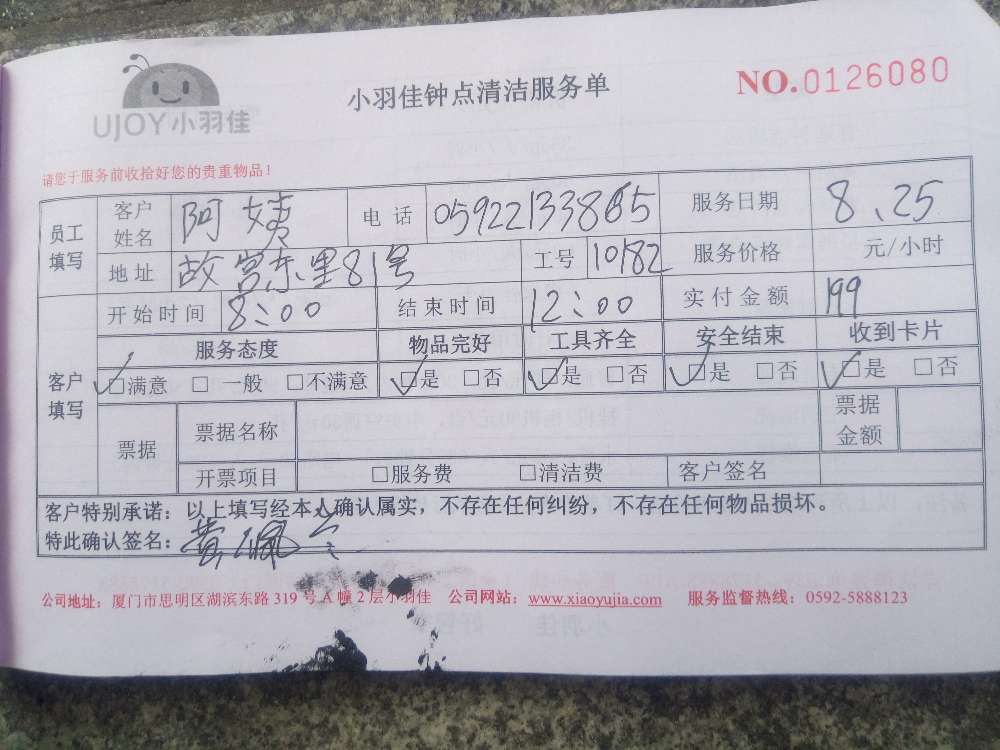 UJOY小羽佳
小羽佳钟点清洁服务单
NO.0126080
请您于服务前收拾好您的贵重物品！
员工填写 客户姓名 阿姨 电话 05922133865 服务日期 8、25
地址 故宫东里81号 工号 10182 服务价格 元/小时
开始时间 8:00 结束时间 12:00 实付金额 199
客户填写 服务态度 物品完好 工具齐全 安全结束 收到卡片
✓□满意 □一般 □不满意 ✓□是 □否 ✓□是 □否 ✓□是 □否 ✓□是 □否
票据 票据名称 票据金额
开票项目 □服务费 □清洁费 客户签名
客户特别承诺：以上填写经本人确认属实，不存在任何纠纷，不存在任何物品损坏。
特此确认签名：黄
公司地址：厦门市思明区湖滨东路 319 号 A 幢 2 层小羽佳 公司网站：www.xiaoyujia.com 服务监督热线：0592-5888123